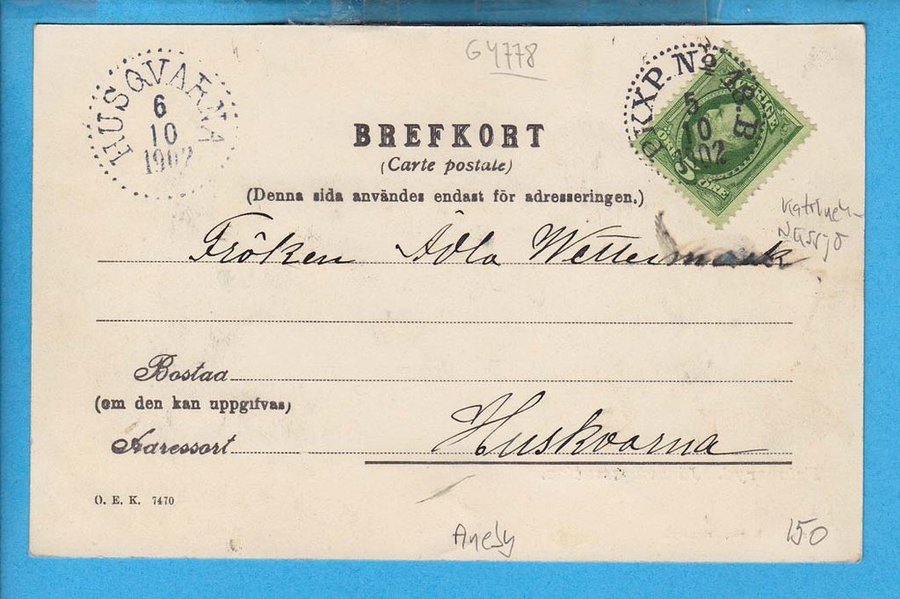 G 4778
HUSQVARNA
6
10
1902
PKXP. No 18. B
5
10
02
SVERIGE
5 ÖRE
BREFKORT
(Carte postale)
(Denna sida användes endast för adresseringen.)
Nässjö
Fröken Ädla Wettermark
Bostad
(om den kan uppgifvas)
Adressort
Huskvarna
O. E. K. 7470
Aneby
150